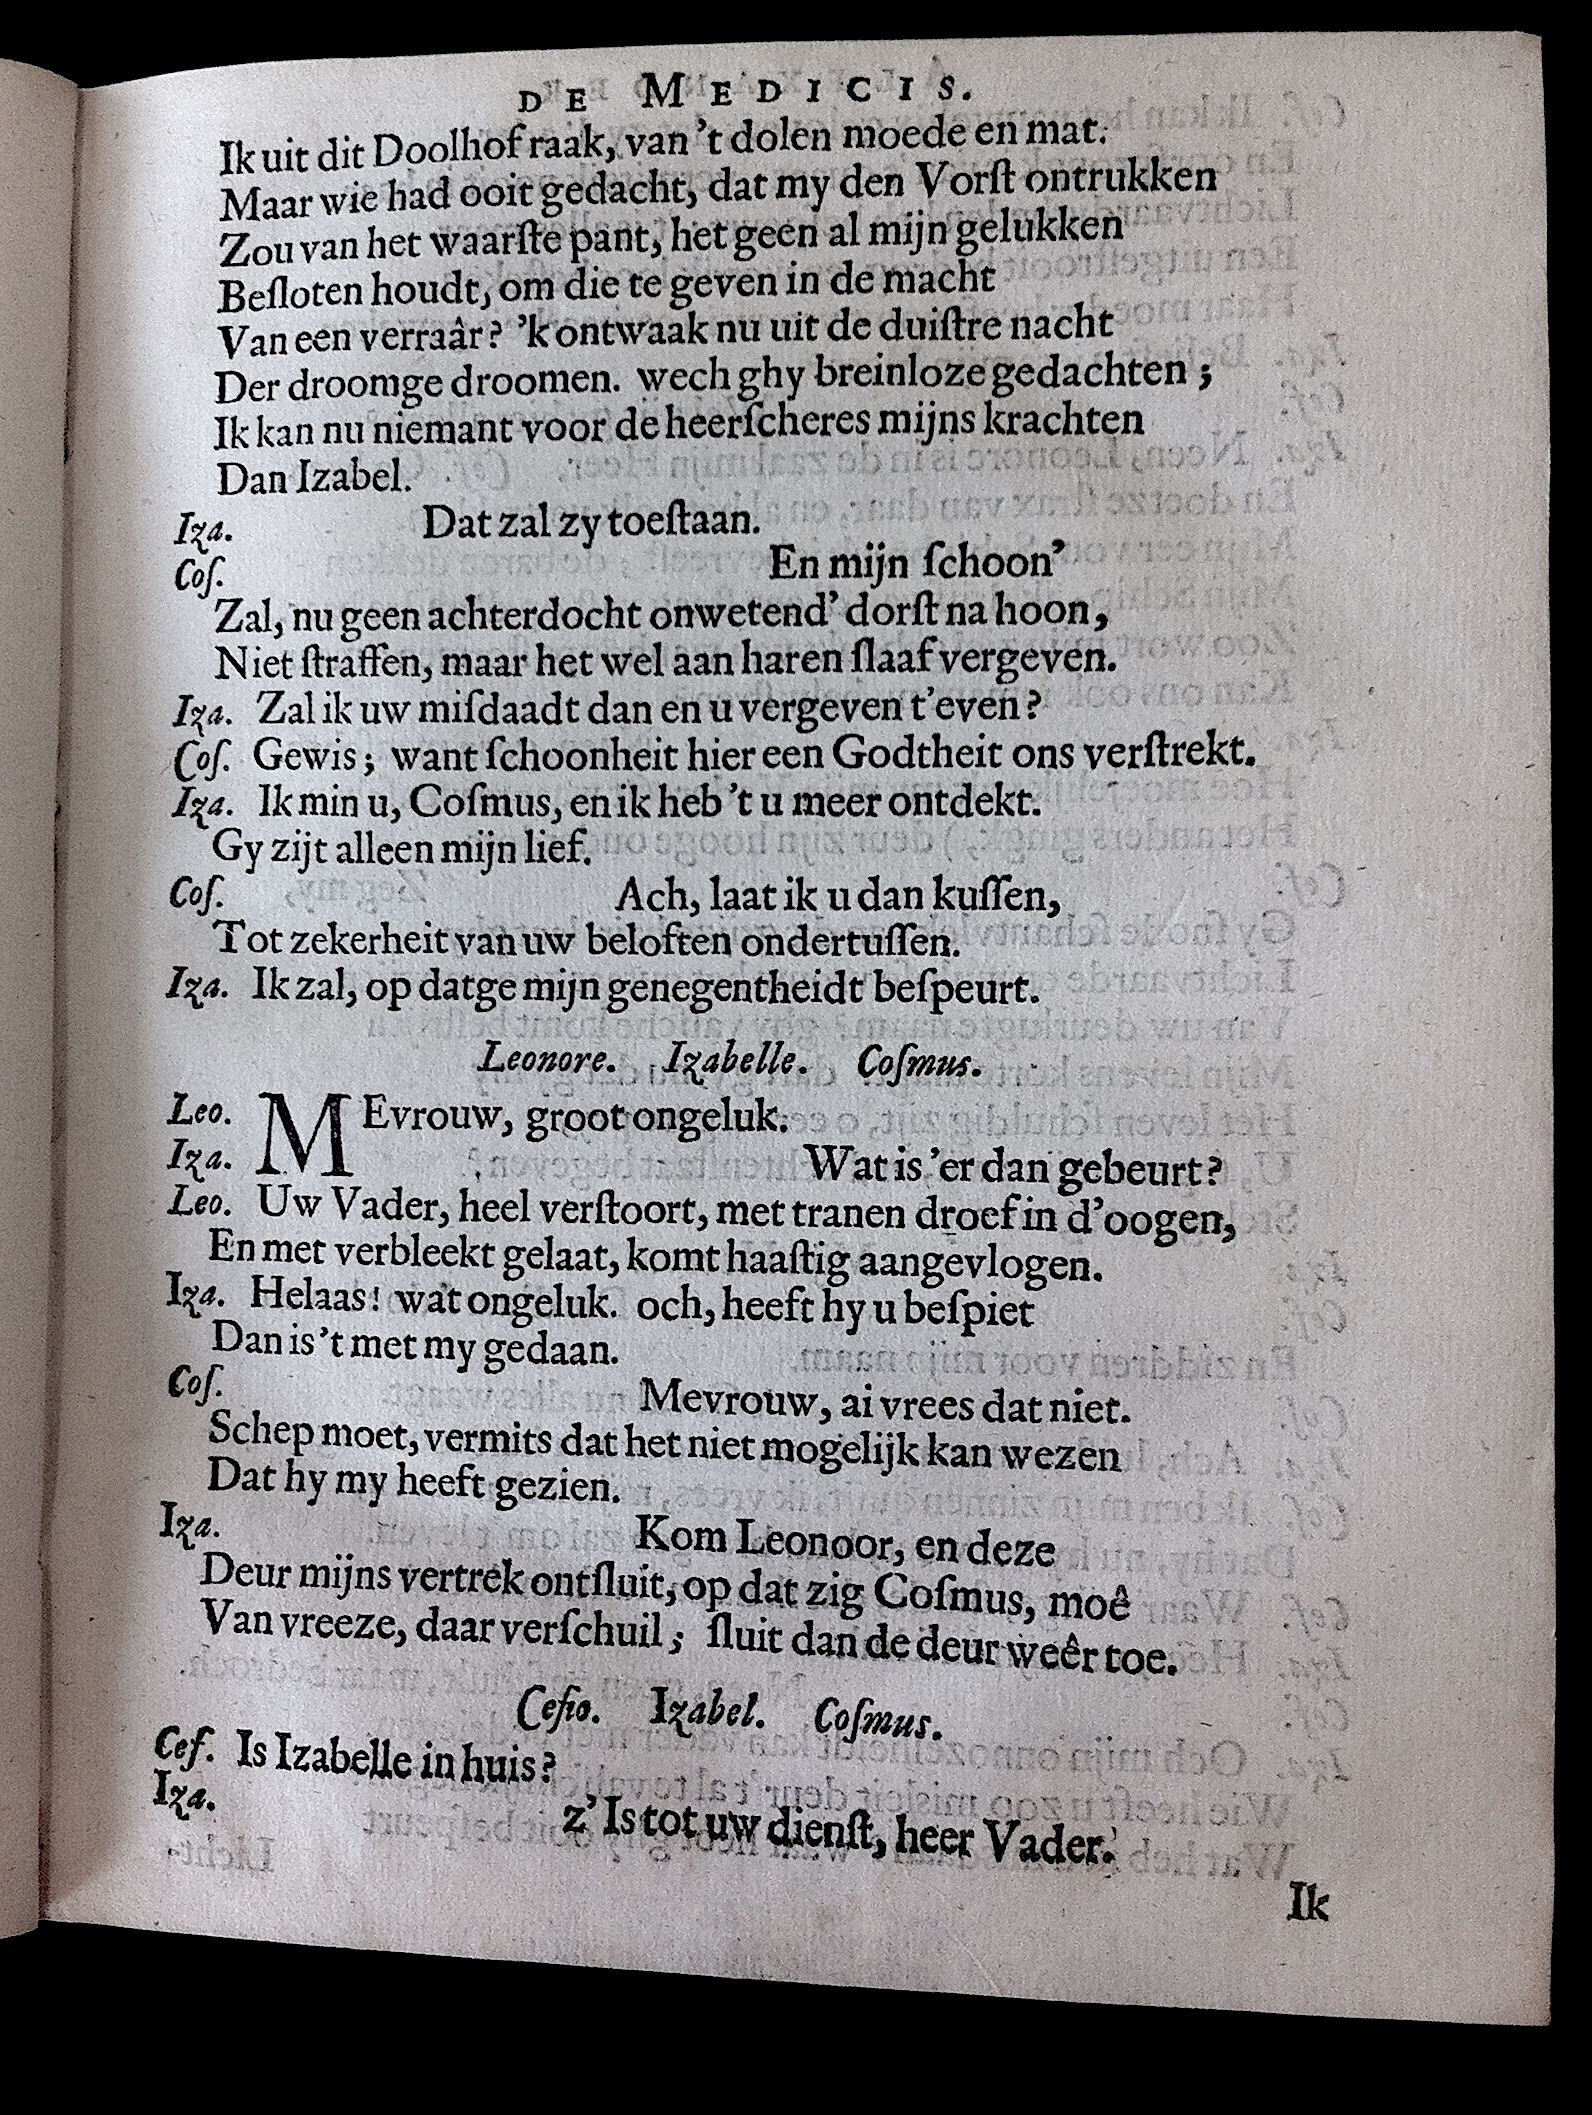 DE MEDICIS.
Ik uit dit Doolhof raak, van 't dolen moede en mat.
Maar wie had ooit gedacht, dat my den Vorſt ontrukken
Zou van het waarſte pant, het geen al mijn gelukken
Beſloten houdt, om die te geven in de macht
Van een verraâr? 'k ontwaak nu uit de duiſtre nacht
Der droomge droomen. wech ghy breinloze gedachten;
Ik kan nu niemant voor de heerſcheres mijns krachten
Dan Izabel.
Iza. Dat zal zy toeſtaan.
Coſ. En mijn ſchoon'
Zal, nu geen achterdocht onwetend' dorſt na hoon,
Niet ſtraffen, maar het wel aan haren ſlaaf vergeven.
Iza. Zal ik uw miſdaadt dan en u vergeven t'even?
Coſ. Gewis; want ſchoonheit hier een Godtheit ons verſtrekt.
Iza. Ik min u, Coſmus, en ik heb 't u meer ontdekt.
Gy zijt alleen mijn lief.
Coſ. Ach, laat ik u dan kuſſen,
Tot zekerheit van uw beloften ondertuſſen.
Iza. Ik zal, op datge mijn genegentheidt beſpeurt.
Leonore. Izabelle. Coſmus.
Leo. MEvrouw, groot ongeluk.
Iza. Wat is 'er dan gebeurt?
Leo. Uw Vader, heel verſtoort, met tranen droef in d'oogen,
En met verbleekt gelaat, komt haaſtig aangevlogen.
Iza. Helaas! wat ongeluk. och, heeft hy u beſpiet
Dan is 't met my gedaan.
Coſ. Mevrouw, ai vrees dat niet.
Schep moet, vermits dat het niet mogelijk kan wezen
Dat hy my heeft gezien.
Iza. Kom Leonoor, en deze
Deur mijns vertrek ontſluit, op dat zig Coſmus, moê
Van vreeze, daar verſchuil; ſluit dan de deur weêr toe.
Ceſio. Izabel. Coſmus.
Ceſ. Is Izabelle in huis?
Iza. z' Is tot uw dienſt, heer Vader.
Ik